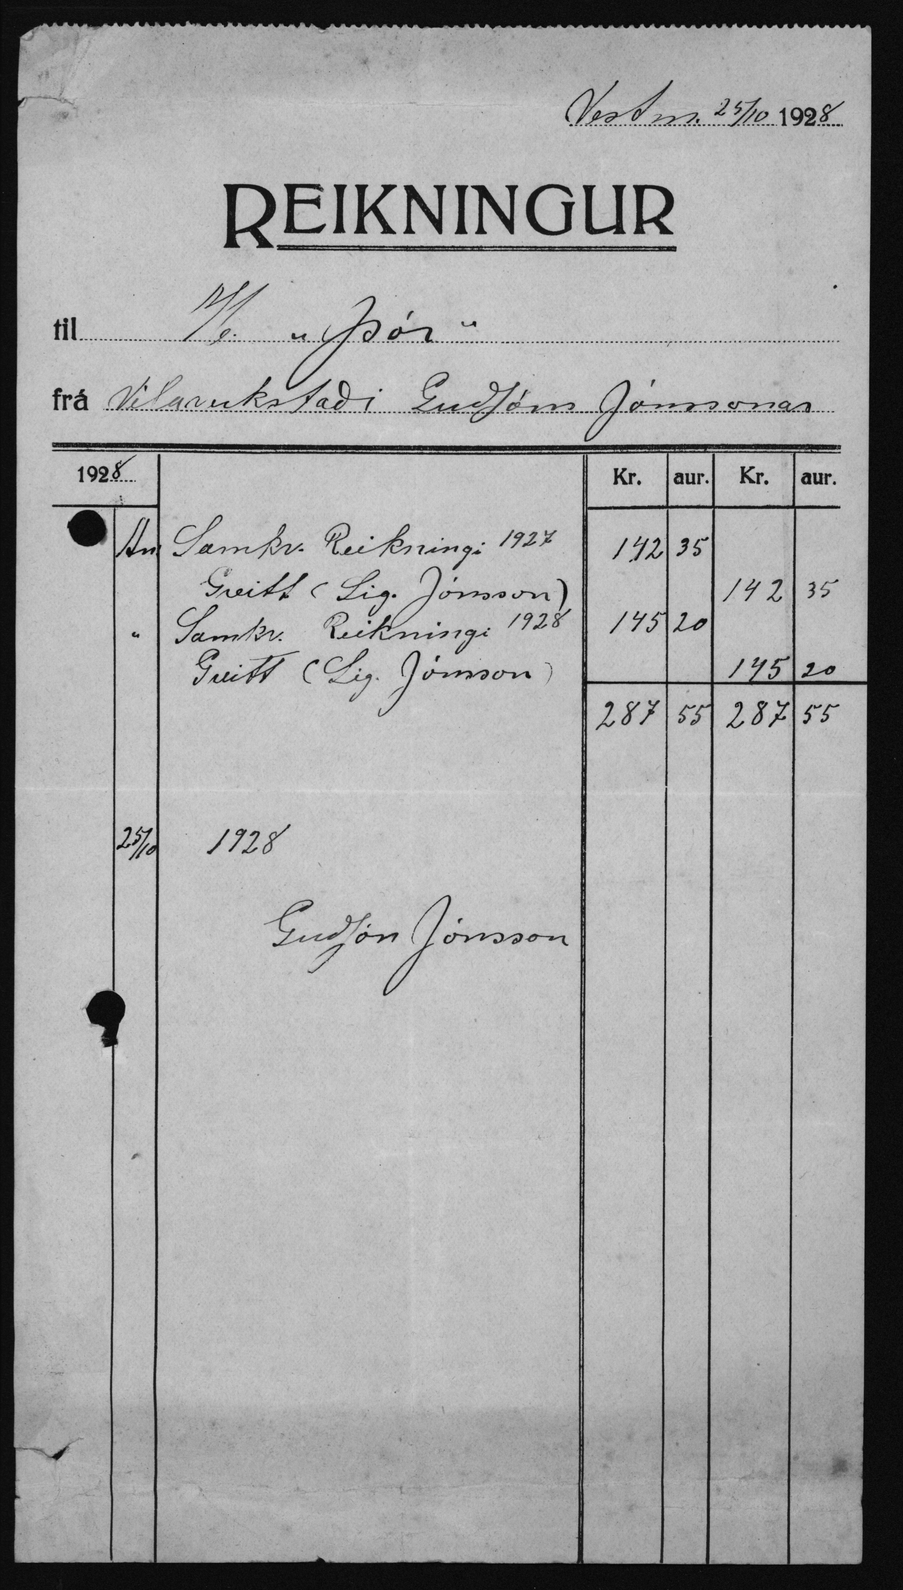 Vestm. 25/10 1928
REIKNINGUR
til M/b. „Þór"
frá Vélaverkstæði Guðjóns Jónssonar
1928 Kr. aur. Kr. aur.
Samkv. Reikningi 1927 142 35
Greitt (Sig. Jónsson) 142 35
" Samkv. Reikningi 1928 145 20
Greitt (Sig. Jónsson) 145 20
287 55 287 55
25/10 1928
Guðjón Jónsson